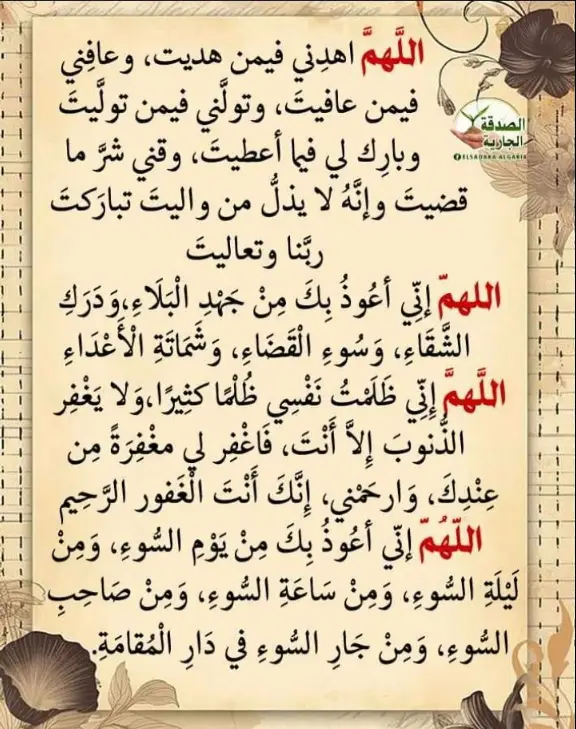 اللَّهمَّ اهدِني فيمن هديت، وعافِني
فيمن عافيتَ، وتولَّني فيمن تولَّيتَ
وبارِك لي فيما أعطيتَ، وقني شرَّ ما
قضيتَ وإنَّهُ لا يذلُّ من واليتَ تبارَكتَ
ربَّنا وتعاليتَ
اللهمّ إنِّي أعُوذُ بِكَ مِنْ جَهْدِ الْبَلَاءِ،وَدَرَكِ
الشَّقَاءِ، وَسُوءِ الْقَضَاءِ، وَشَمَاتَةِ الْأَعْدَاءِ
اللَّهمَّ إِنِّي ظَلَمْتُ نَفْسِي ظُلْمًا كثِيرًا،وَلا يَغْفِر
الذُّنوبَ إِلاَّ أَنْتَ، فَاغْفِر لي مغْفِرَةً مِن
عِنْدِكَ، وَارحَمْني، إِنَّكَ أَنْتَ الْغَفور الرَّحِيم
اللّهُمّ إنّي أعُوذُ بِكَ مِنْ يَوْمِ السُّوءِ، وَمِنْ
لَيْلَةِ السُّوءِ، وَمِنْ سَاعَةِ السُّوءِ، وَمِنْ صَاحِبِ
السُّوءِ، وَمِنْ جَارِ السُّوءِ في دَارِ الْمُقامَةِ.
الصدقة
الجارية
ELSADAKA.ALGARIA